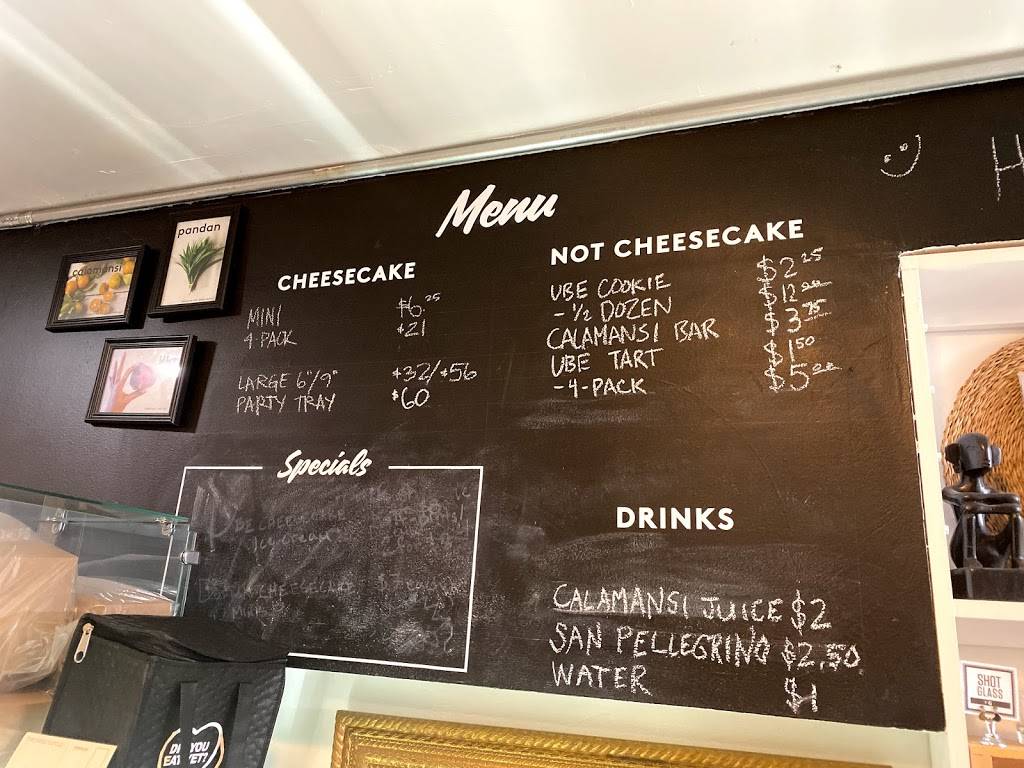 Menu
pandan
calamansi
CHEESECAKE
MINI $6.25
4-PACK $21
LARGE 6"/9" $32/$56
PARTY TRAY $60
NOT CHEESECAKE
UBE COOKIE $2.25
- ½ DOZEN $12.00
CALAMANSI BAR $3.75
UBE TART $1.50
- 4-PACK $5.00
Specials
ICE CREAM
CHEESECAKE
DRINKS
CALAMANSI JUICE $2
SAN PELLEGRINO $2.50
WATER $1
H
SHOT
GLASS
YOU